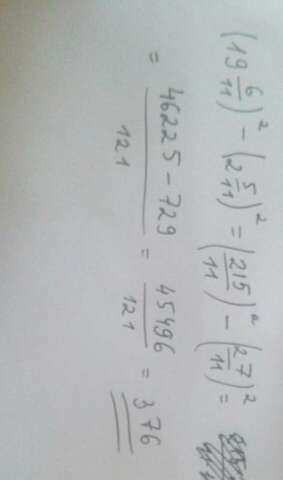 (19 6/11)² - (2 5/11)² = (215/11)² - (27/11)² =
= 46225 - 729 / 121 = 45496 / 121 = 376